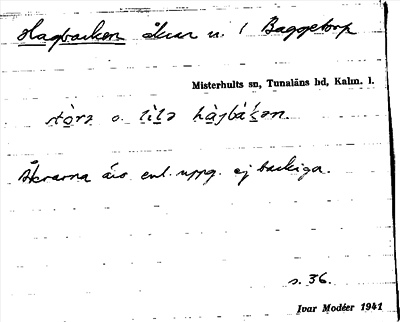 Hagbacken åkrar n. / Baggetorp
Misterhults sn, Tunaläns hd, Kalm. l.
stòrə o. lìlə hàgbákən.
Åkrarna äro enl. uppg. ej backiga.
s. 36.
Ivar Modéer 1941